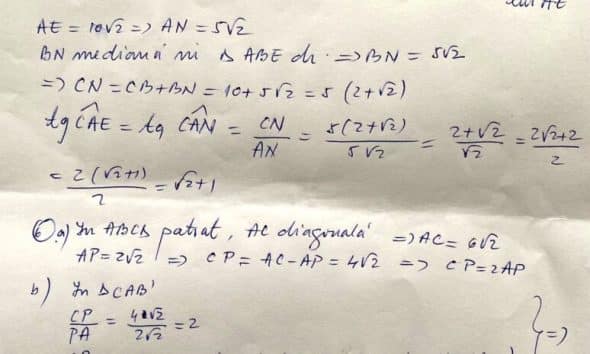 lui AE
AE = 10√2 => AN = 5√2
BN mediană în Δ ABE dr. => BN = 5√2
=> CN = CB+BN = 10+5√2 = 5 (2+√2)
tg CÂE = tg CÂN = CN/AN = 5(2+√2)/5√2 = 2+√2/√2 = 2√2+2/2
= 2(√2+1)/2 = √2+1
⑥ a) În ABCD pătrat, AC diagonală => AC = 6√2
AP = 2√2 => CP = AC-AP = 4√2 => CP = 2AP
b) În ΔCAB'
CP/PA = 4√2/2√2 = 2 } =>